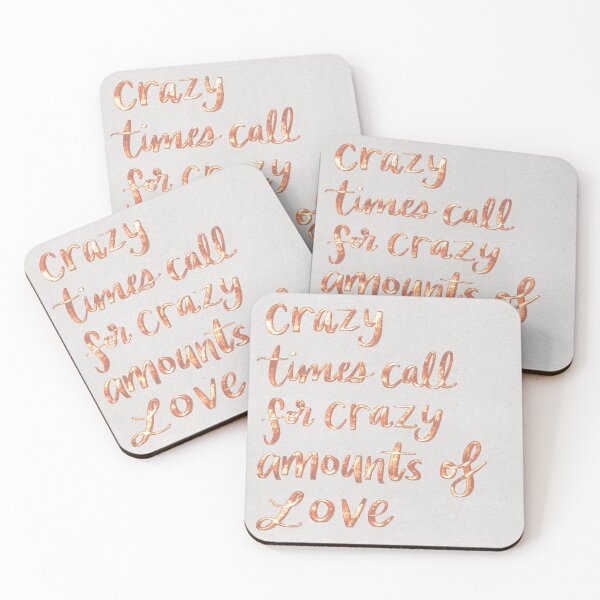 crazy
times call
for crazy
crazy
times call
for crazy
amounts of
crazy
times call
for crazy
amounts
Love
crazy
times call
for crazy
amounts of
Love